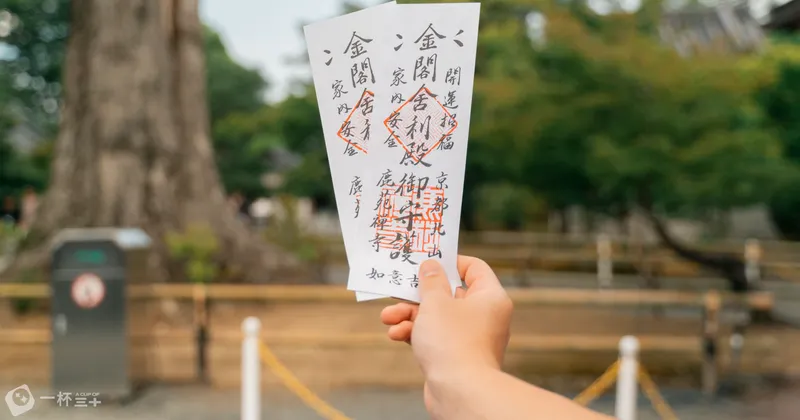 開運招福
金閣舍利殿御守護
家内安全
京都北山
鹿苑禅寺
如意吉
金閣舍
家内安全
鹿
一杯三十
A CUP OF